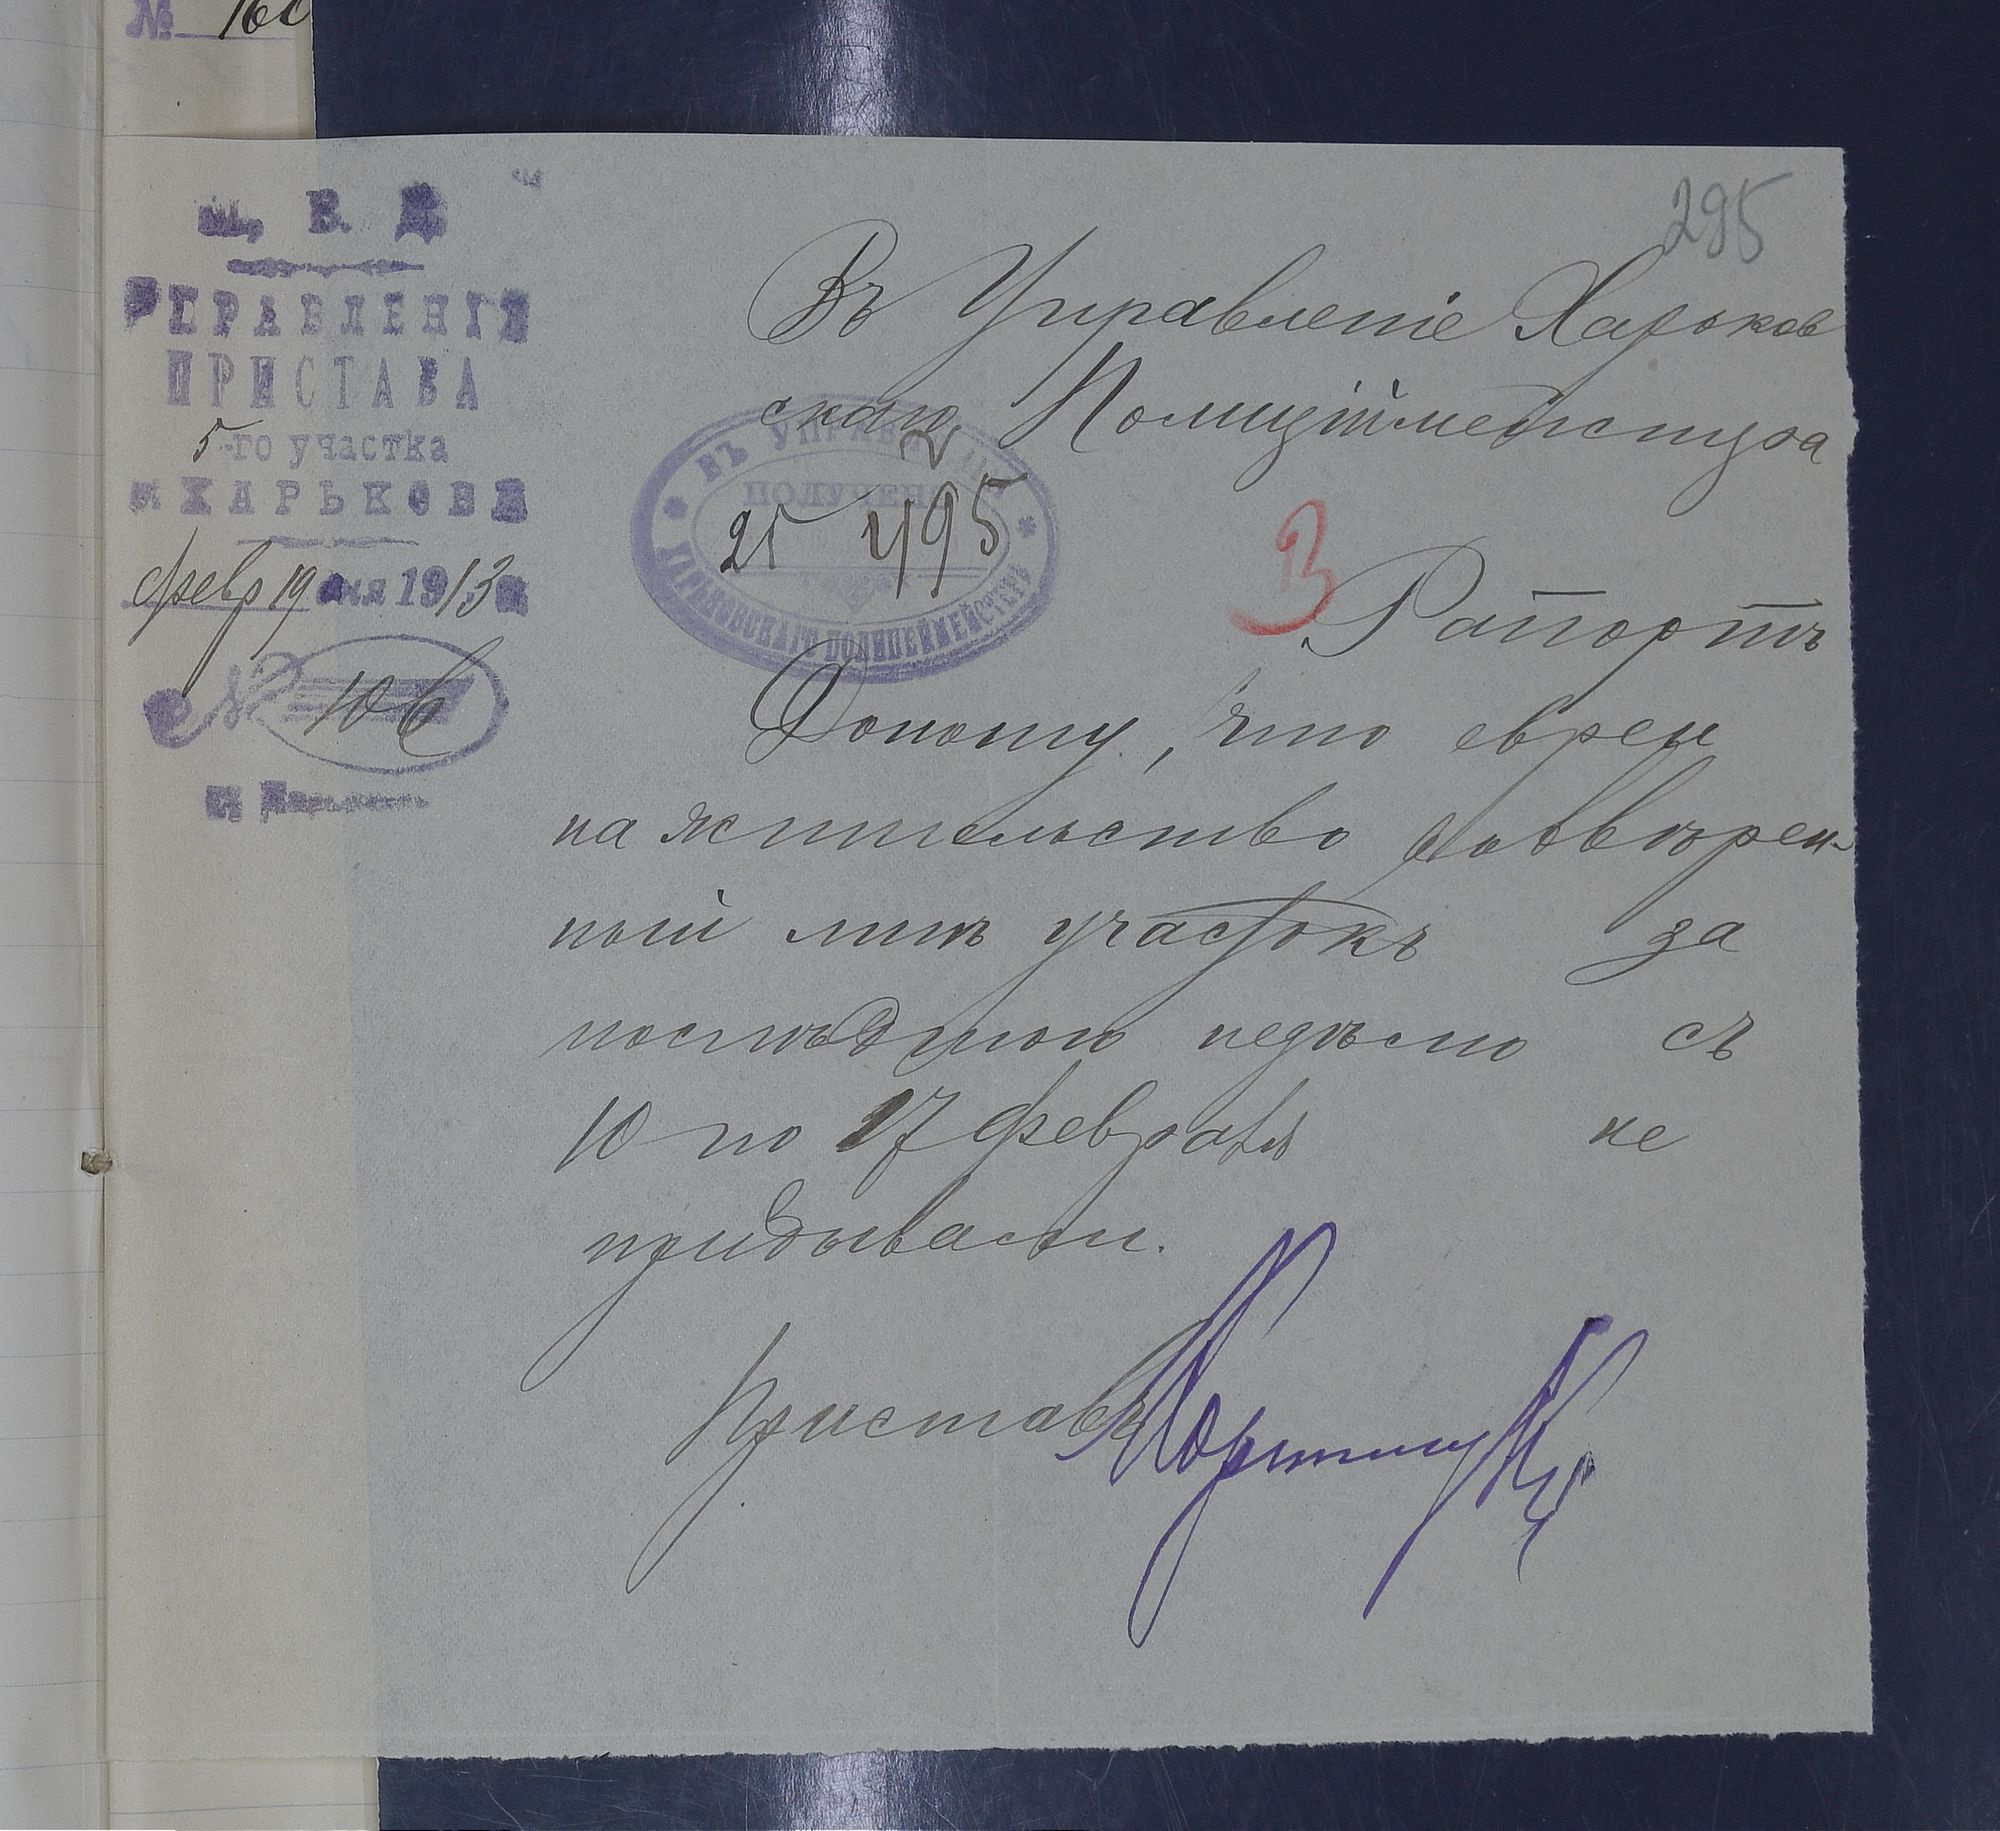 № 160
295
М. В. Д.
УПРАВЛЕНІЕ
ПРИСТАВА
5-го участка
г. ХАРЬКОВА
февр 19 дня 1913 г.
№ 106
г. Харьковъ
Въ Управленіе Харьков
скаго Полиціймейстера
ВЪ УПРАВЛЕНІИ
ПОЛУЧЕНО
21 495
ХАРЬКОВСКАГО ПОЛИЦЕЙМЕЙСТЕРА
3
Рапортъ
Доношу, что евреи
на жительство во ввѣрен-
ный мнѣ участокъ за
послѣднюю недѣлю съ
10 по 17 февраля не
прибывали.
Приставъ